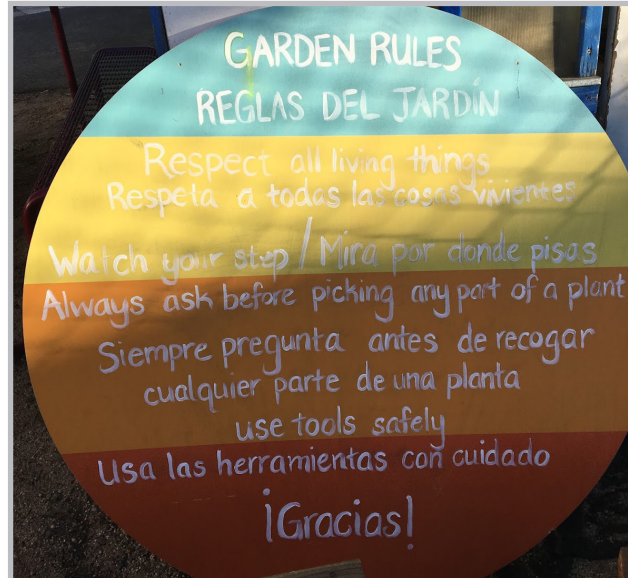 GARDEN RULES
REGLAS DEL JARDÍN
Respect all living things
Respeta a todas las cosas vivientes
Watch your step / Mira por donde pisas
Always ask before picking any part of a plant
Siempre pregunta antes de recogar
cualquier parte de una planta
use tools safely
Usa las herramientas con cuidado
¡Gracias!